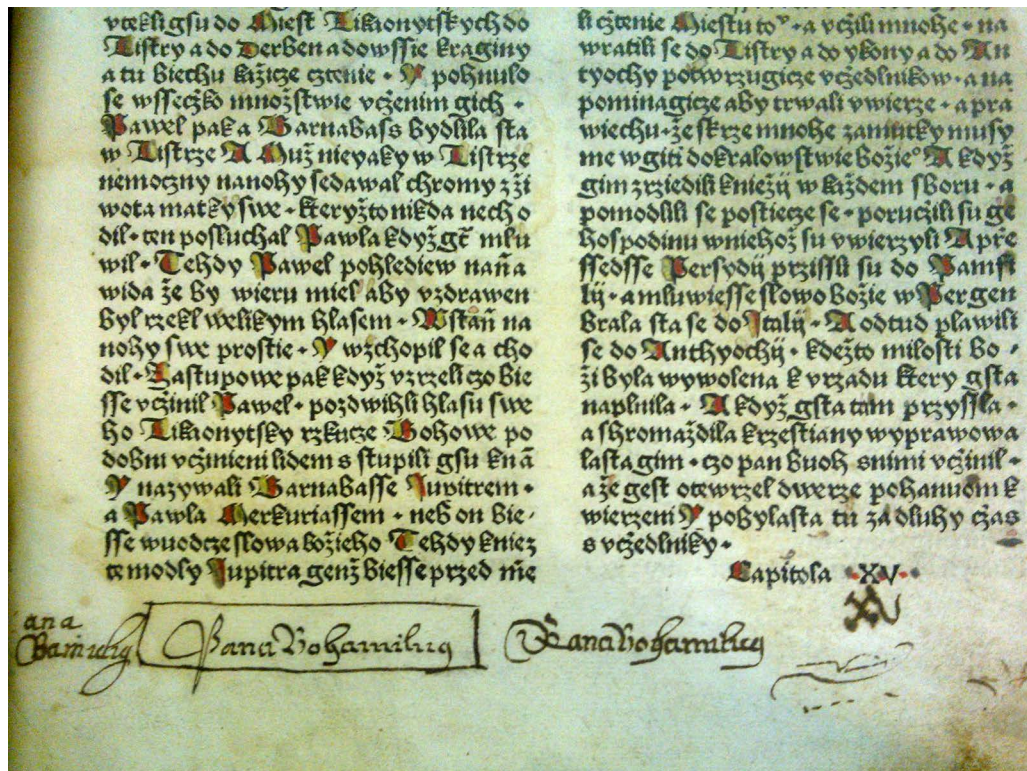 vtekli gsu do Miest Likaonytských do
Listry a do Derben a do wssie kraginy
a tu biechu kážicze cztenie · Y pohnulo
se wsseczko množstwie včzenim gich ·
Pawel pak a Barnabass bydlila sta
w Listrze A Muž nieyaky w Listrze
nemoczny na nohy sedawal chromy z ži
wota matky swe · kteryžto nikda necho
dil · ten posluchal Pawla kdyžgt mlu
wil · Tehdy Pawel pohlediew naň a
wida že by wieru miel aby vzdrawen
byl rzekl welikym hlasem · Wstaň na
nohy swe prostie · Y wzchopil se a cho
dil · Zastupowe pak když vzrzeli czo bie
sse včžinil Pawel · pozdwihli hlasu swe
ho Likaonytsky rzkucze Bohowe po
dobni včžinieni lidem s stupili gsu k nā
Y nazywali Barnabasse Jupitrem ·
a Pawla Merkuriassem · neb on bie-
sse wuodcze slowa božieho Tehdy kniez
te modly Jupitra genž biesse przed mē
li cztenie Miestu to · a včžili mnohe · na
wratili se do Listry a do ykony a do An
tyochy potwrzugicze včžedlnikow · a na
pominagicze aby trwali v wierze · a pra
wiechu · že skrze mnohe zamutky musy
me wgiti do kralowstwie božie° A když
gim zrziedili kniežij w každem sboru · a
pomodlili se postiecze se · poručžili su ge
hospodinu w niehož su vwierzyli A pře
ssedsse Persydij przissli su do Pamfi
lij · a mluwiesse slowo božie w Pergen
brala sta se do Italij · A odtud plawili
se do Anthyochij · kdežto milosti bo ·
ži byla wywolena k vrzadu ktery gsta
naplnila · A když gsta tam przyssla ·
a shromaždila krzestiany wyprawowa
lasta gim · czo pan buoh s nimi včžinil ·
a že gest otewrzel dwerze pohanuom k
wierzeni Y pobylasta tu za dluhy cžas
s včžedlniky ·
Capitola · XV ·
XV
ana